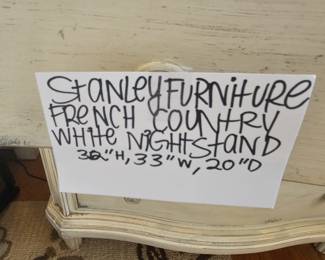 StanleyFurniture
French Country
White Nightstand
30"H, 33"W, 20"D